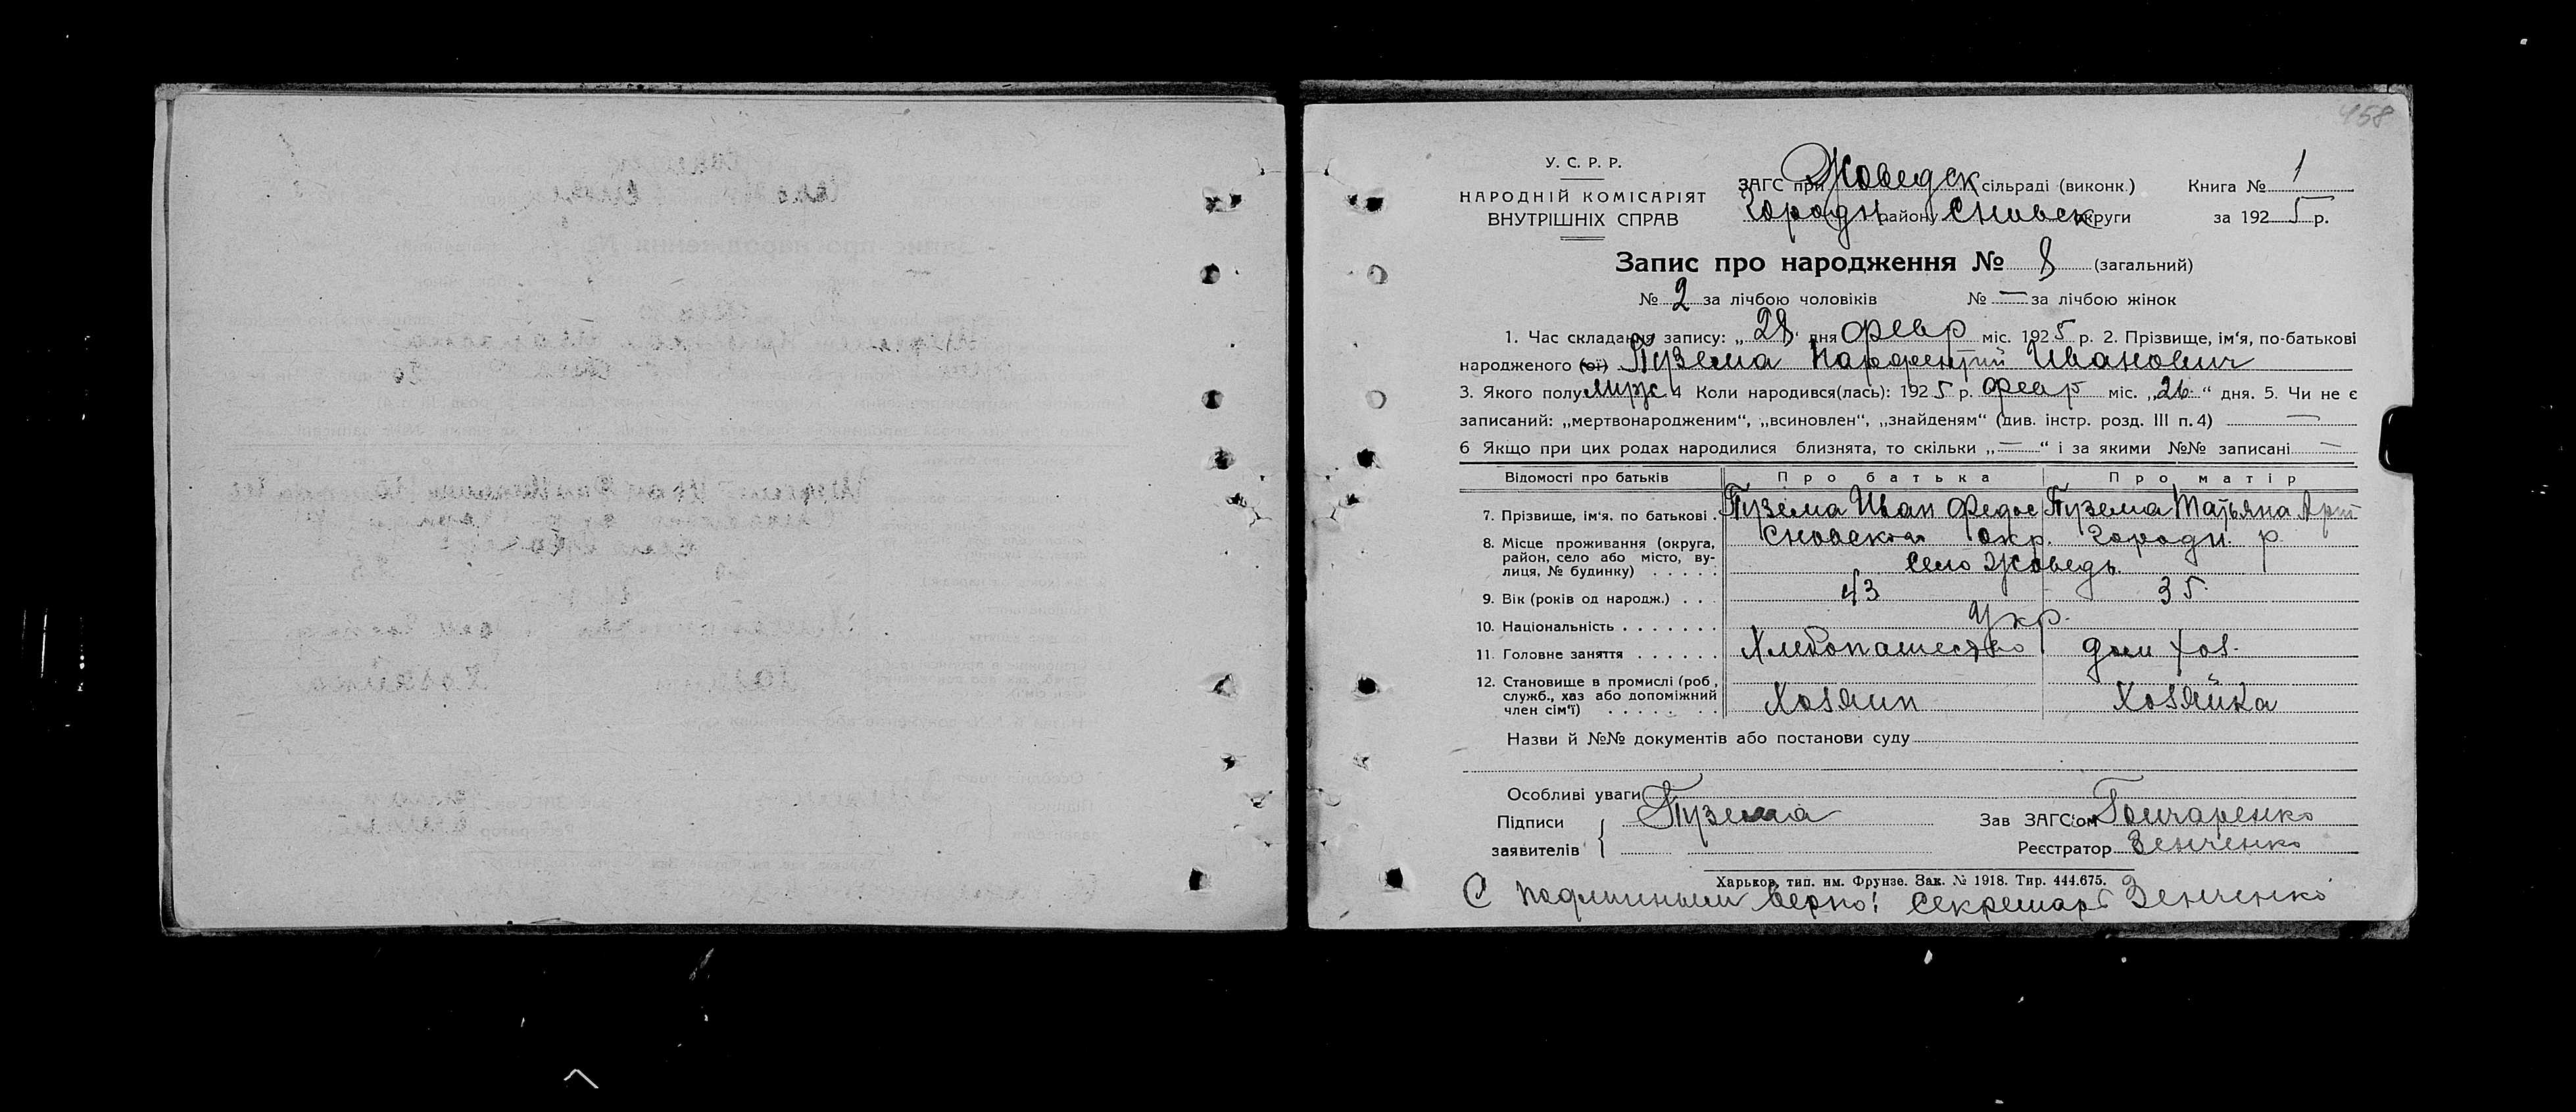 458
У. С. Р. Р.
НАРОДНІЙ КОМІСАРІЯТ
ВНУТРІШНІХ СПРАВ
ЗАГС при Жоведск сільраді (виконк.) Книга № 1
Городн району Сновск округи за 1925 р.
Запис про народження № 8 (загальний)
№ 2 за лічбою чоловіків № — за лічбою жінок
1. Час складання запису: „28“ дня февр міс. 1925 р. 2. Прізвище, ім'я, по-батькові
народженого (ої) Пузема Иванович
3. Якого полу муж 4 Коли народився(лась): 1925 р. февр міс. „26“ дня. 5. Чи не є
записаний: „мертвонародженим“, „всиновлен“, „знайденям“ (див. інстр. розд. III п. 4) —
6 Якщо при цих родах народилися близнята, то скільки „—“ і за якими №№ записані —
Відомості про батьків Про батька Про матір
7. Прізвище, ім'я, по батькові . Пузема Иван Федос Пузема Татьяна
8. Місце проживання (округа, район, село або місто, вулиця, № будинку) . . . . . Сновской окр. Городн. р
село Жоведь
9. Вік (років од народж.) . . . 43 35
10. Національність . . . . . . . Укр.
11. Головне заняття . . . . . . Хлебопашество дом хоз.
12. Становище в промислі (роб., служб., хаз або допоміжний член сім'ї) . . . . . . . Хозяин Хозяйка
Назви й №№ документів або постанови суду
Особливі уваги
Підписи Пузема Зав ЗАГС'ом Гончаренко
заявителів Реєстратор Зенченко
Харьков, тип. им. Фрунзе. Зак. № 1918. Тир. 444.675.
С подлинным верно: Секретарь Зенченко